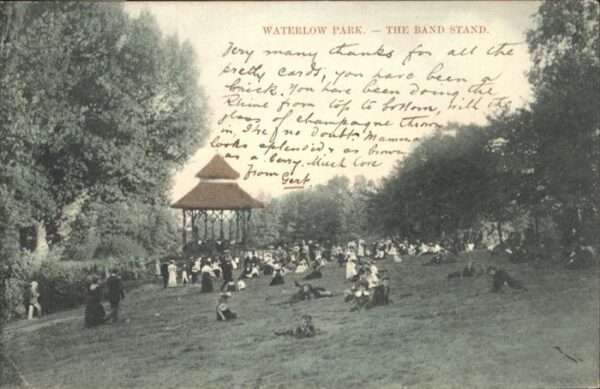 WATERLOW PARK. — THE BAND STAND.
Very many thanks for all the
pretty cards, you have been a
brick. You have been doing the
Rhine from top to bottom, with the
glass of champagne thrown
in, I've no doubt. Mamma
looks splendid & as brown
as a berry. Much love
from Gert